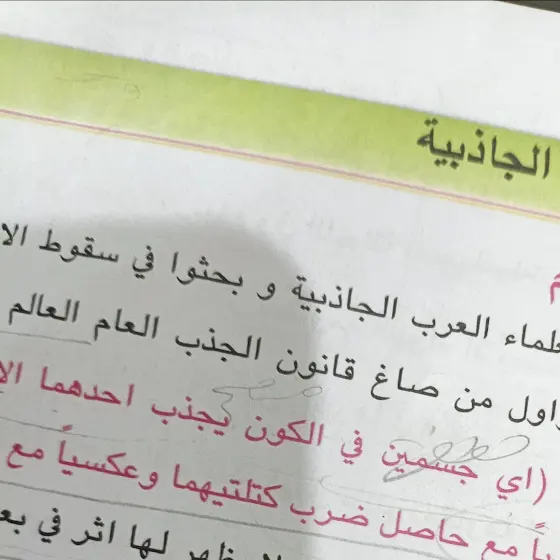 الجاذبية
العرب الجاذبية و بحثوا في سقوط
من صاغ قانون الجذب العام العالم
(اي جسمين في الكون يجذب احدهما
مع حاصل ضرب كتلتيهما وعكسياً مع
لها اثر في